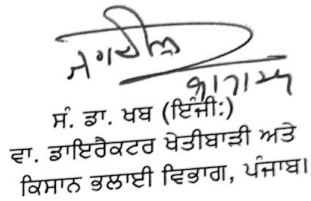 ਸੰ. ਡਾ. ਖਬ (ਇੰਜੀ:)
ਵਾ. ਡਾਇਰੈਕਟਰ ਖੇਤੀਬਾੜੀ ਅਤੇ
ਕਿਸਾਨ ਭਲਾਈ ਵਿਭਾਗ, ਪੰਜਾਬ।